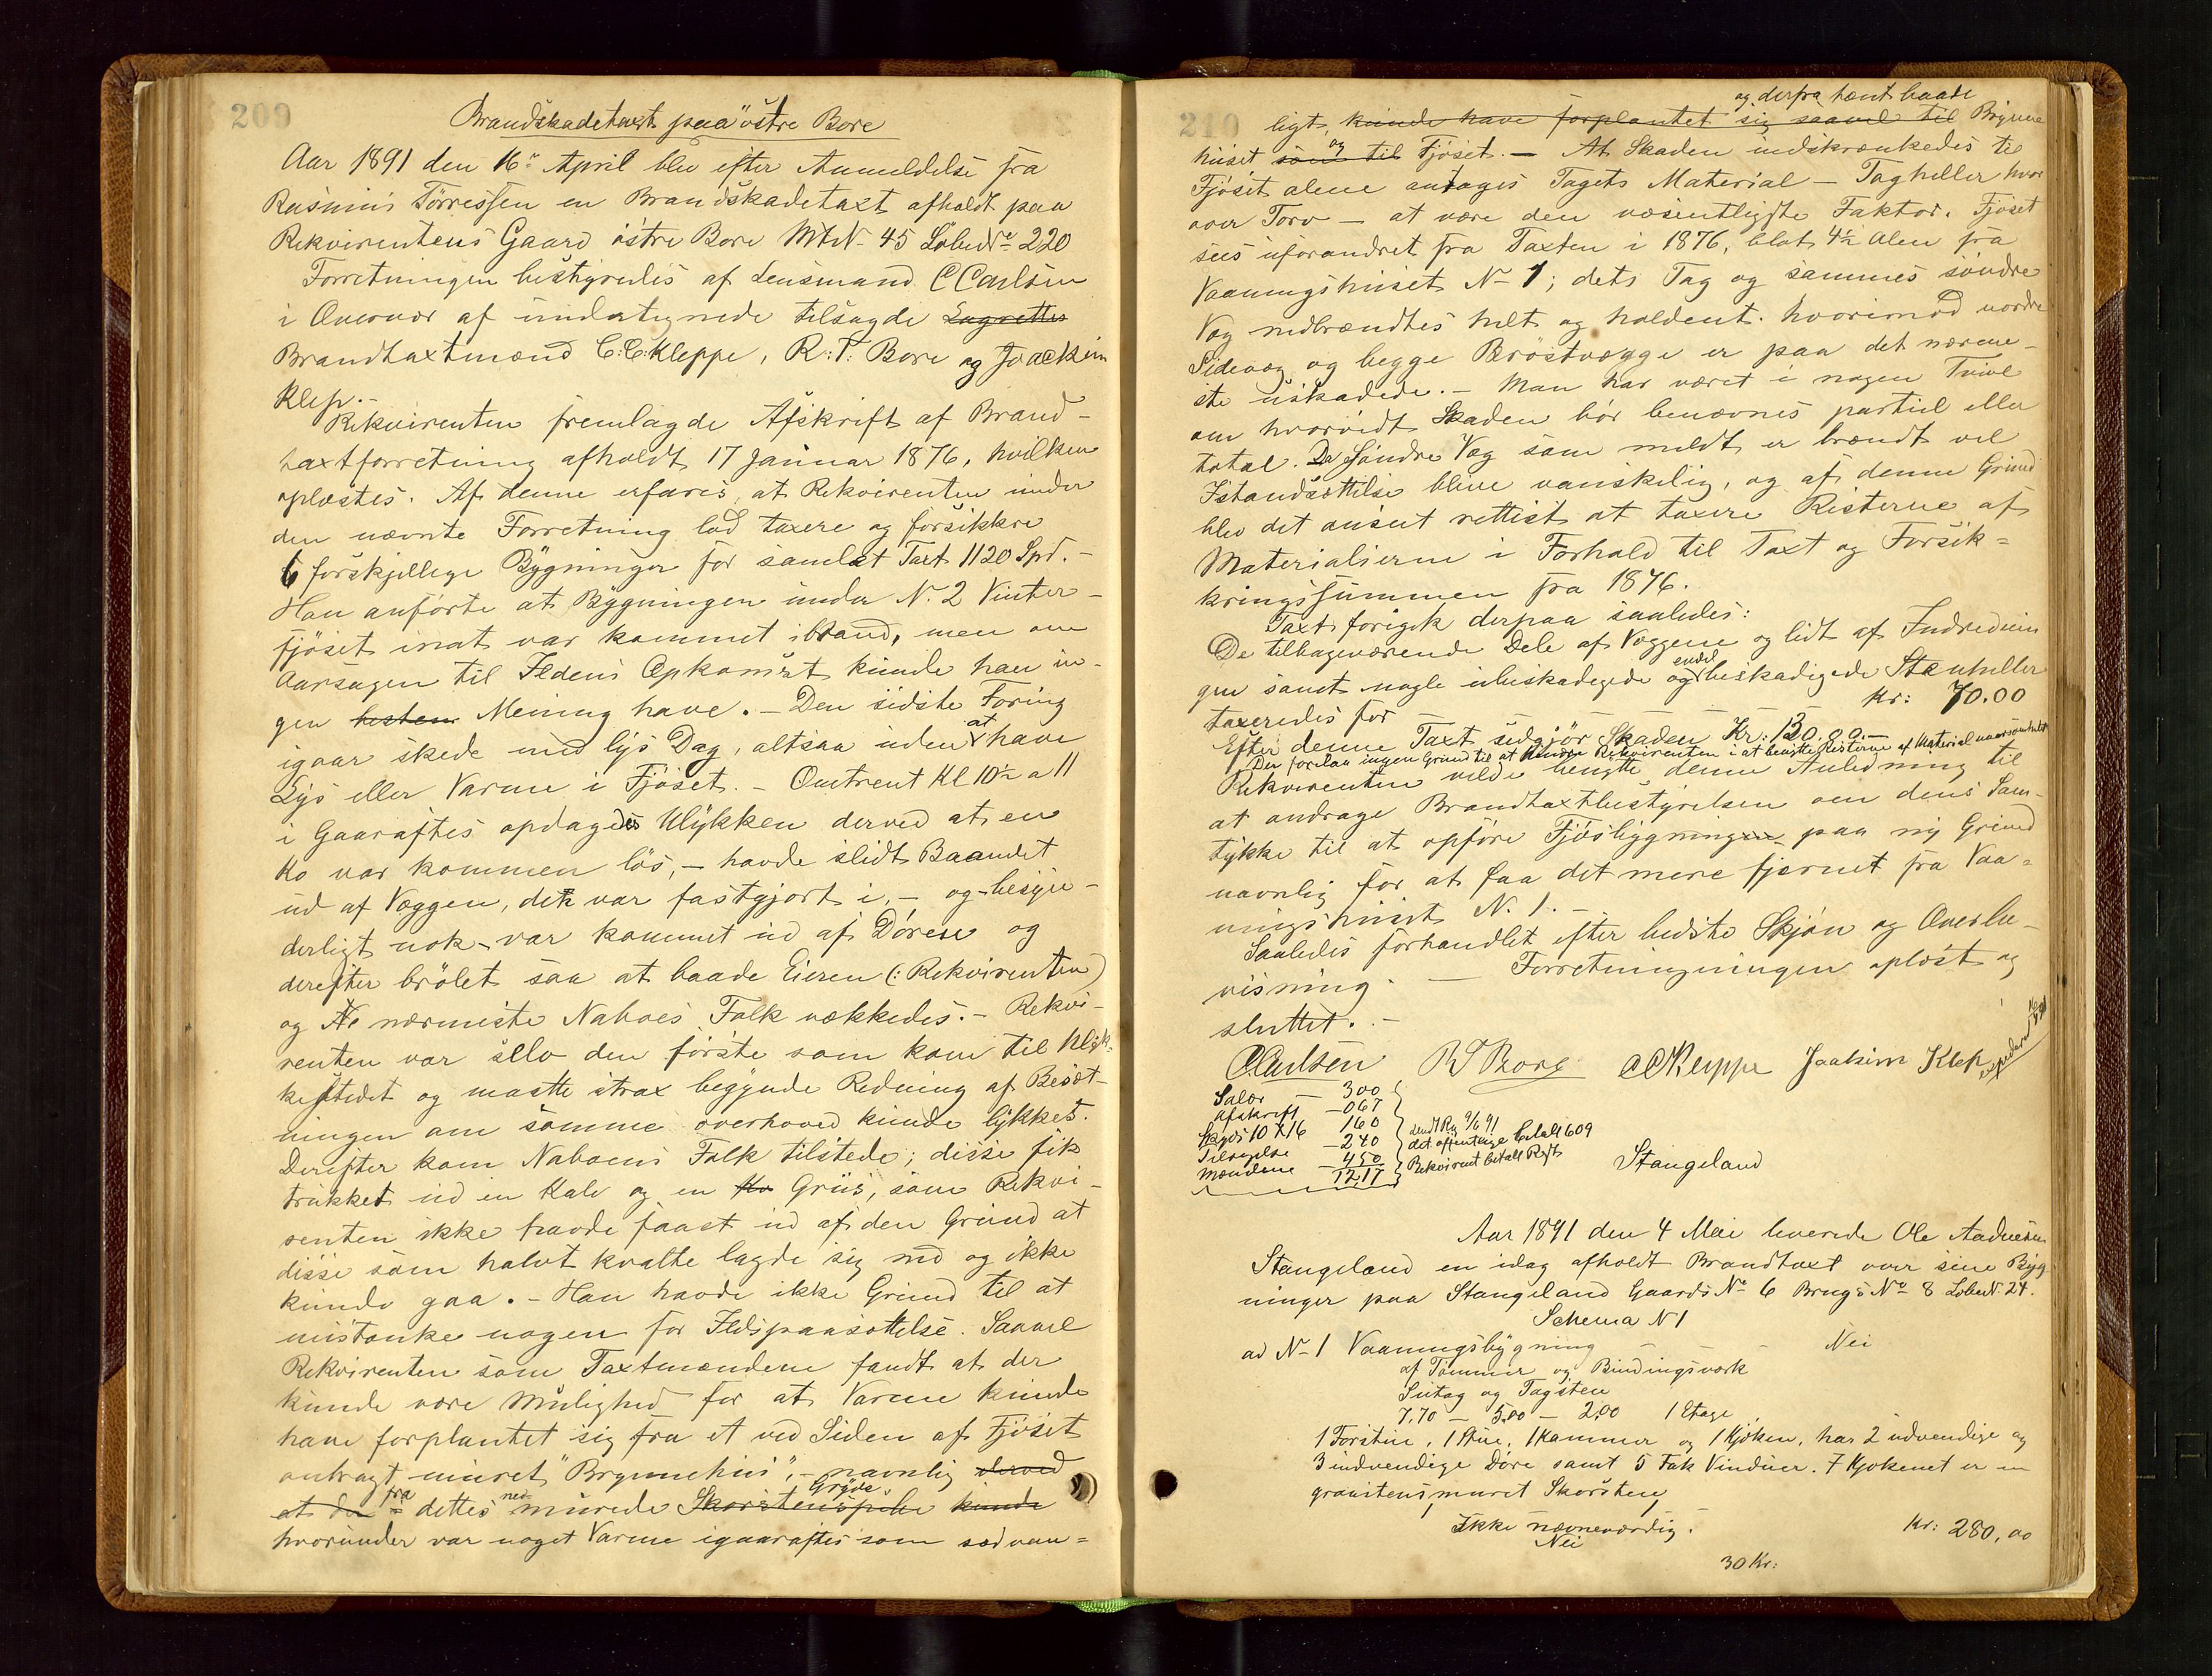 209
Brandskadetaxt paa östre Bore
Aar 1891 den 16de April blev efter Anmeldelse fra
Rasmus Törressen en Brandskadetaxt afholdt paa
Rekvirentens Gaard östre Bore MtN. 45 LøbeNo 220
Forretningen bestyredes af Lensmand C Carlsen
i Overvær af undertegnede tilsagde Lagrettes
Brandtaxtmænd C.C. Kleppe, R.T. Bore og Joackim
Klep.-
Rekvirenten fremlagde Afskrift af Brand-
taxtforretning afholdt 17 Januar 1876, hvilken
oplæstes. Af denne erfares, at Rekvirenten under
den nævnte Forretning lod taxere og forsikkre
6 forskjellige Bygninger for samlet Taxt 1120 Spd.-
Han anførte at Bygningen under N. 2 Vinter-
fjöset inat var kommet ibrand, men om
Aarsagen til Ildens Opkomst kunde han in-
gen bestem Mening have. - Den sidste Foring
igaar skede med lys Dag, altsaa uden at have
Lys eller Varme i Fjöset. - Omtrent Kl 10½ a 11
i Gaaraftes opdagedes Ulykken derved at en
Ko var kommen lös, - havde slidt Baandet
ud af Væggen, det var fastgjort i, - og - besyn-
derligt nok - var kommet ud af Dören og
derefter brölet saa at baade Eieren (: Rekvirenten)
og de nærmeste Naboes Folk vækkedes. - Rekvi-
renten var selv den förste som kom til Ulyk-
kestedet og maatte strax begynde Redning af Besæt-
ningen om samme overhoved kunde lykkes.
Derefter kom Naboens Folk tilstede; disse fik
trukket ud en Kalv og en Ko Griis, som Rekvi-
renten ikke havde faaet ud af den Grund at
disse som halvt kvalte lagde sig ned og ikke
kunde gaa. - Han havde ikke Grund til at
mistænke nogen for Ildspaasættelse. Saavel
Rekvirenten som Taxtmændene fandt at der
kunde være Mulighed for at Varme kunde
have forplantet sig fra et ved Siden af Fjöset
anbragt muret "Bryggehus", - navnlig derved
at der i fra dettes ned murede Skorstenspibe Gryde kunde
hvorunder var noget Varme igaaraftes som sædvan=
210
ligt, kunde have forplantet sig saavel til og derfra tænt baade Brygge
huset som til og Fjöset. - At Skaden indskrænkedes til
Fjöset alene antages Tagets Material - Tagheller hvor
over Torv - at være den væsentligste Faktor. Fjöset
sees uforandret fra Taxten i 1876, blot 4½ Alen fra
Vaaningshuset N- 1; dets Tag og sammes söndre
Væg nedbrændtes helt og holdent. hvorimod nordre
Sidevæg og begge Bröstvægge er paa det nærme-
ste uskadede. - Man har været i nogen Tvivl
om hvorvidt Skaden bör benævnes partiel eller
total. Da Söndre Væg som meldt er brændt vil
Istandsættelse blive vanskelig, og af denne Grund
blev det anseet rettest at taxere Resterne af
Materialierne i Forhold til Taxt og Forsik=
kringssummen fra 1876.
Taxt foregik derpaa saaledes:
De tilbageværende Dele af Væggene og lidt af Indrednin
gen samt nogle ubeskadegede og endel beskadigede Stenheller
taxeredes for Kr: 70.00
Efter denne Taxt udgjör Skaden Kr: 130.00.-
Der forelaa ingen Grund til at hindre Rekvirenten i at benytte Resterne af Material naarsomhelst
Rekvirenten vilde benytte denne Anledning til
at andrage Brandtaxtbestyrelsen om dens Sam-
tykke til at opföre Fjösbygningen paa ny Grund
navnlig for at faa det mere fjernet fra Vaa-
ningshuset N. 1. -
Saaledes forhandlet efter bedste Skjön og Overbe-
visning. - Forretningningen oplæst og
sluttet. -
CCarlsen RTBore CCKleppe Joakim Klep
Salær - 300
Afskrift - 067
Skyds 10 X 16 160
Tilsigelse - 240
Mændene - 450
1217
sendt Rg 9/6 91
det offentlige betalt 609
Rekvirent betalt Rest
Stangeland
Aar 1891 den 4 Mai leverede Ole Andreasen
Stangeland en idag afholdt Brandtaxt over sine Byg
ninger paa Stangeland Gaards No 6 Brugs No 8 LøbeN. 24.
Schema N 1
ad N- 1 Vaaningsbygning - Nei
af Tömmer og Bindingsværk
Sutag og Tagsten
7,70 - 5,00 - 2,00 1 Etage
1 Forstue, 1 Stue, 1 Kammer og 1 Kjöken, har 2 udvendige og
3 indvendige Döre samt 5 Fak Vinduer. I Kjökenet er en
graastensmuret Skorsten
Ikke nævneværdig. Kr: 280,00
Nei
30 Kr: